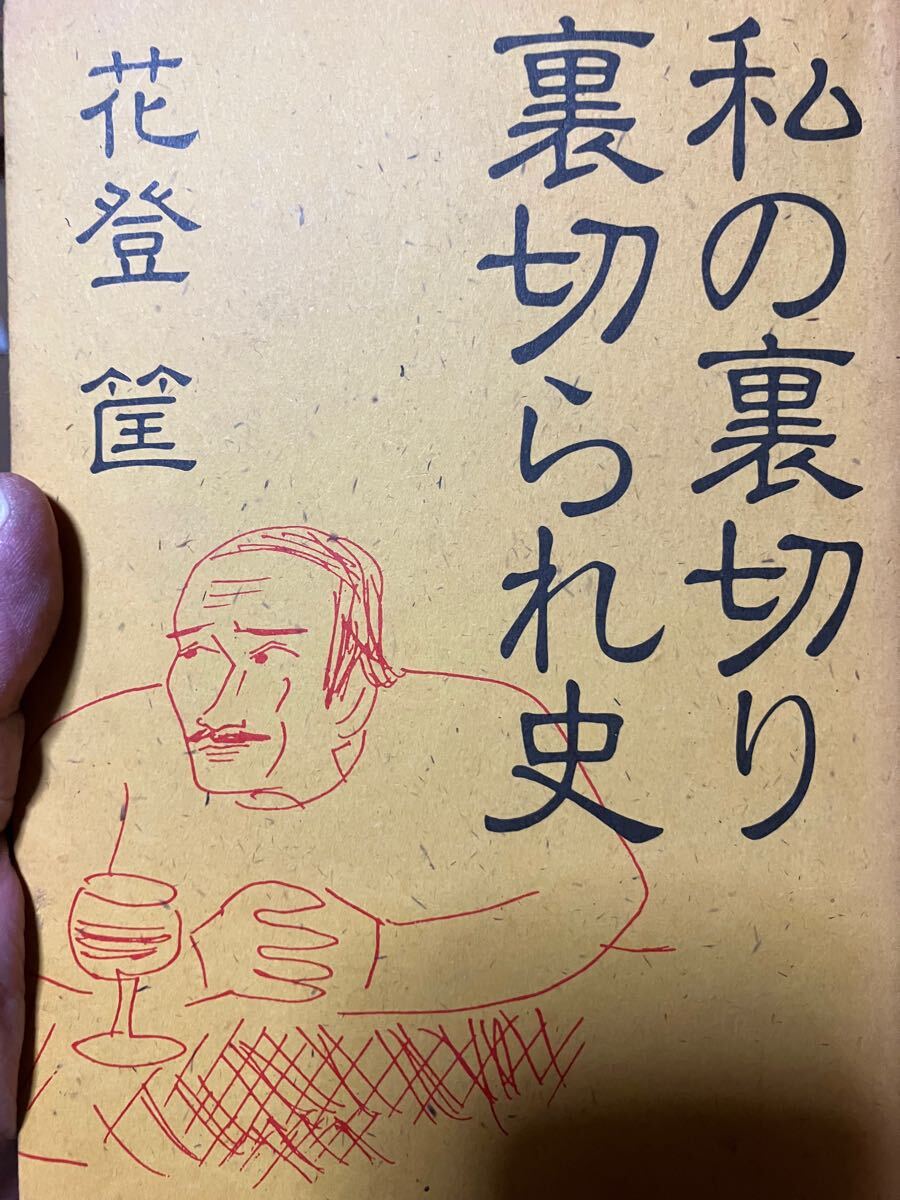 私の裏切り
裏切られ史
花登 筐